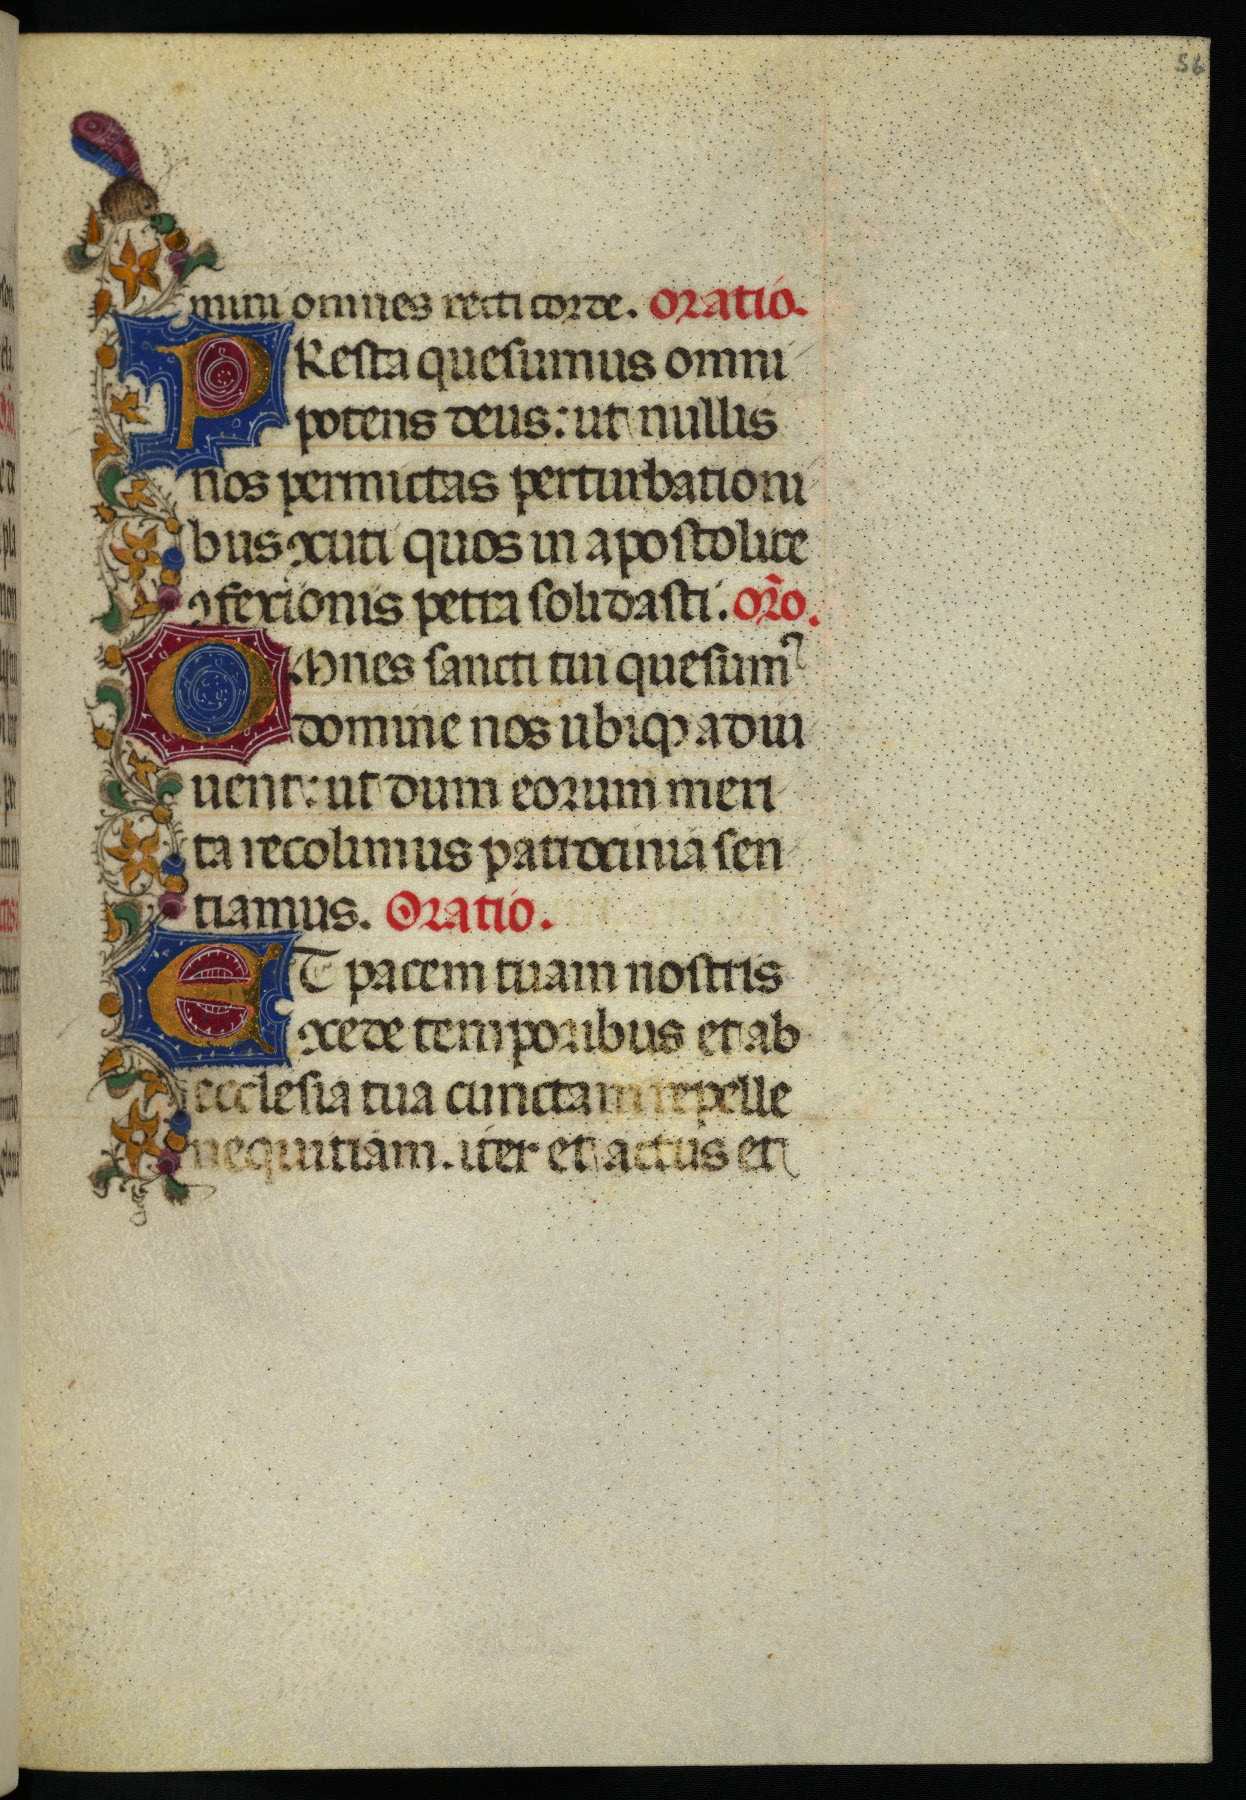 56
mini omnes recti corde. Oratio.
PResta quesumus omni
potens deus: ut nullis
nos permictas perturbationi
bus ꝯcuti quos in apostolice
ꝯfexionis petra solidasti. Or̄o.
OMnes sancti tui quesumꝰ
domine nos ubiqꝫ adiu
uent: ut dum eorum meri
ta recolimus patrocinia sen
tiamus. Oratio.
ET pacem tuam nostris
ꝯcede temporibus et ab
ecclesia tua cunctam repelle
nequitiam. iter et actus et